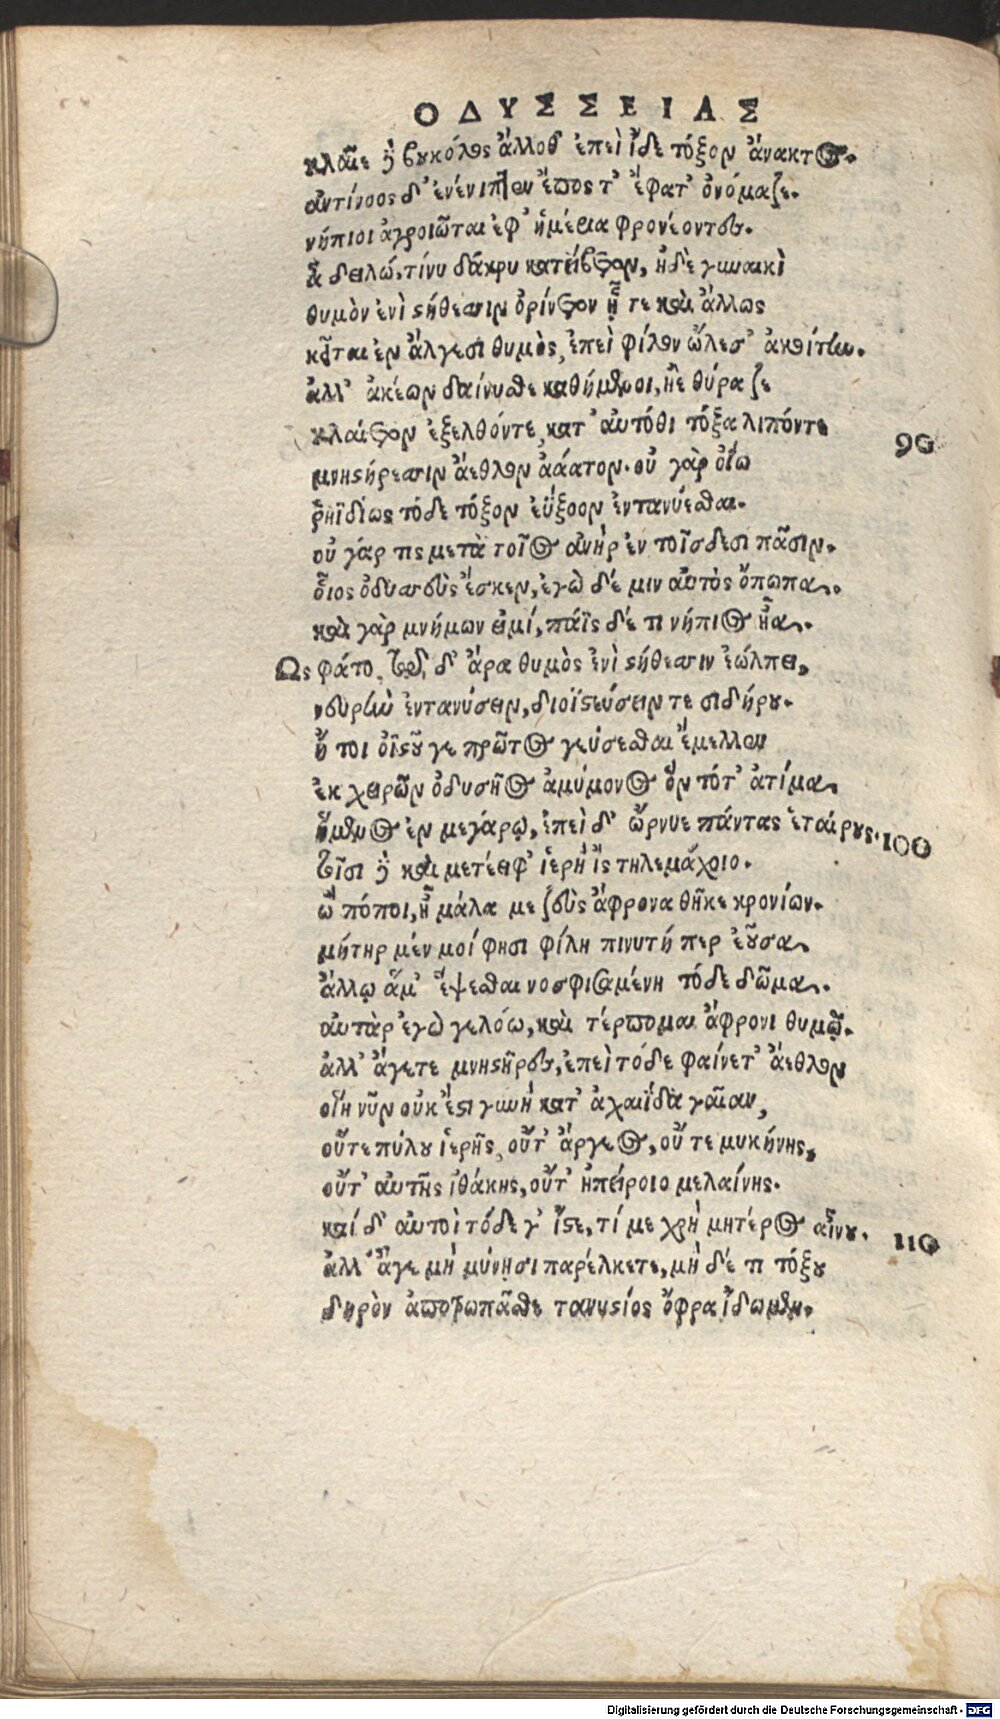 ΟΔΥΣΣΕΙΑΣ
κλαῖε δὲ βουκόλος ἄλλοθ' ἐπεὶ ἴδε τόξον ἄνακτος.
ἀντίνοος δ' ἐνένιπτεν ἔπος τ' ἔφατ' ὀνόμαζε.
νήπιοι ἀγροιῶται ἐφ' ἡμέρια φρονέοντες.
ἆ δειλώ, τί νυ δάκρυ κατείβετον, ἠδὲ γυναικὶ
θυμὸν ἐνὶ στήθεσσιν ὀρίνετον ᾗ τε καὶ ἄλλως
κεῖται ἐν ἄλγεσι θυμὸς, ἐπεὶ φίλον ὤλεσ' ἀκοίτην.
ἀλλ' ἀκέων δαίνυσθε καθήμενοι, ἠὲ θύραζε
κλαίετον ἐξελθόντε, κατ' αὐτόθι τόξα λιπόντε
90
μνηστήρεσσιν ἄεθλον ἀάατον. οὐ γὰρ ὀΐω
ῥηϊδίως τόδε τόξον ἐΰξοον ἐντανύεσθαι.
οὐ γάρ τις μετὰ τοῖος ἀνὴρ ἐν τοῖσδεσι πᾶσιν.
οἷος ὀδυσσεὺς ἔσκεν, ἐγὼ δέ μιν αὐτὸς ὄπωπα.
καὶ γὰρ μνήμων εἰμί, πάϊς δέ τι νήπιος ἦα.
Ὣς φάτο, τῷ δ' ἄρα θυμὸς ἐνὶ στήθεσσιν ἐώλπει,
νευρὴν ἐντανύσειν, διοϊστεύσειν τε σιδήρου.
ἤ τοι ὀϊστοῦ γε πρῶτος γεύσεσθαι ἔμελλεν
ἐκ χειρῶν ὀδυσῆος ἀμύμονος ὃν τότ' ἀτίμα
ἥμενος ἐν μεγάρῳ, ἐπεὶ δ' ὤρνυε πάντας ἑταίρους.
100
τοῖσι δὲ καὶ μετέειφ' ἱερὴ ἲς τηλεμάχοιο.
ὢ πόποι, ἦ μάλα με ζεὺς ἄφρονα θῆκε κρονίων.
μήτηρ μέν μοί φησι φίλη πινυτή περ ἐοῦσα
ἄλλῳ ἅμ' ἕψεσθαι νοσφισαμένη τόδε δῶμα.
αὐτὰρ ἐγὼ γελόω, καὶ τέρπομαι ἄφρονι θυμῷ.
ἀλλ' ἄγετε μνηστῆρες, ἐπεὶ τόδε φαίνετ' ἄεθλον
οἵη νῦν οὐκ ἔστι γυνὴ κατ' ἀχαιΐδα γαῖαν,
οὔτε πύλου ἱερῆς, οὔτ' ἄργεος, οὔτε μυκήνης,
οὔτ' αὐτῆς ἰθάκης, οὔτ' ἠπείροιο μελαίνης.
καί δ' αὐτοὶ τόδε γ' ἴστε, τί με χρὴ μητέρος αἴνου.
110
ἀλλ' ἄγε μὴ μύνησι παρέλκετε, μὴ δέ τι τόξου
δηρὸν ἀποτρωπᾶσθε τανυστύος ὄφρα ἴδωμεν.
Digitalisierung gefördert durch die Deutsche Forschungsgemeinschaft - DFG